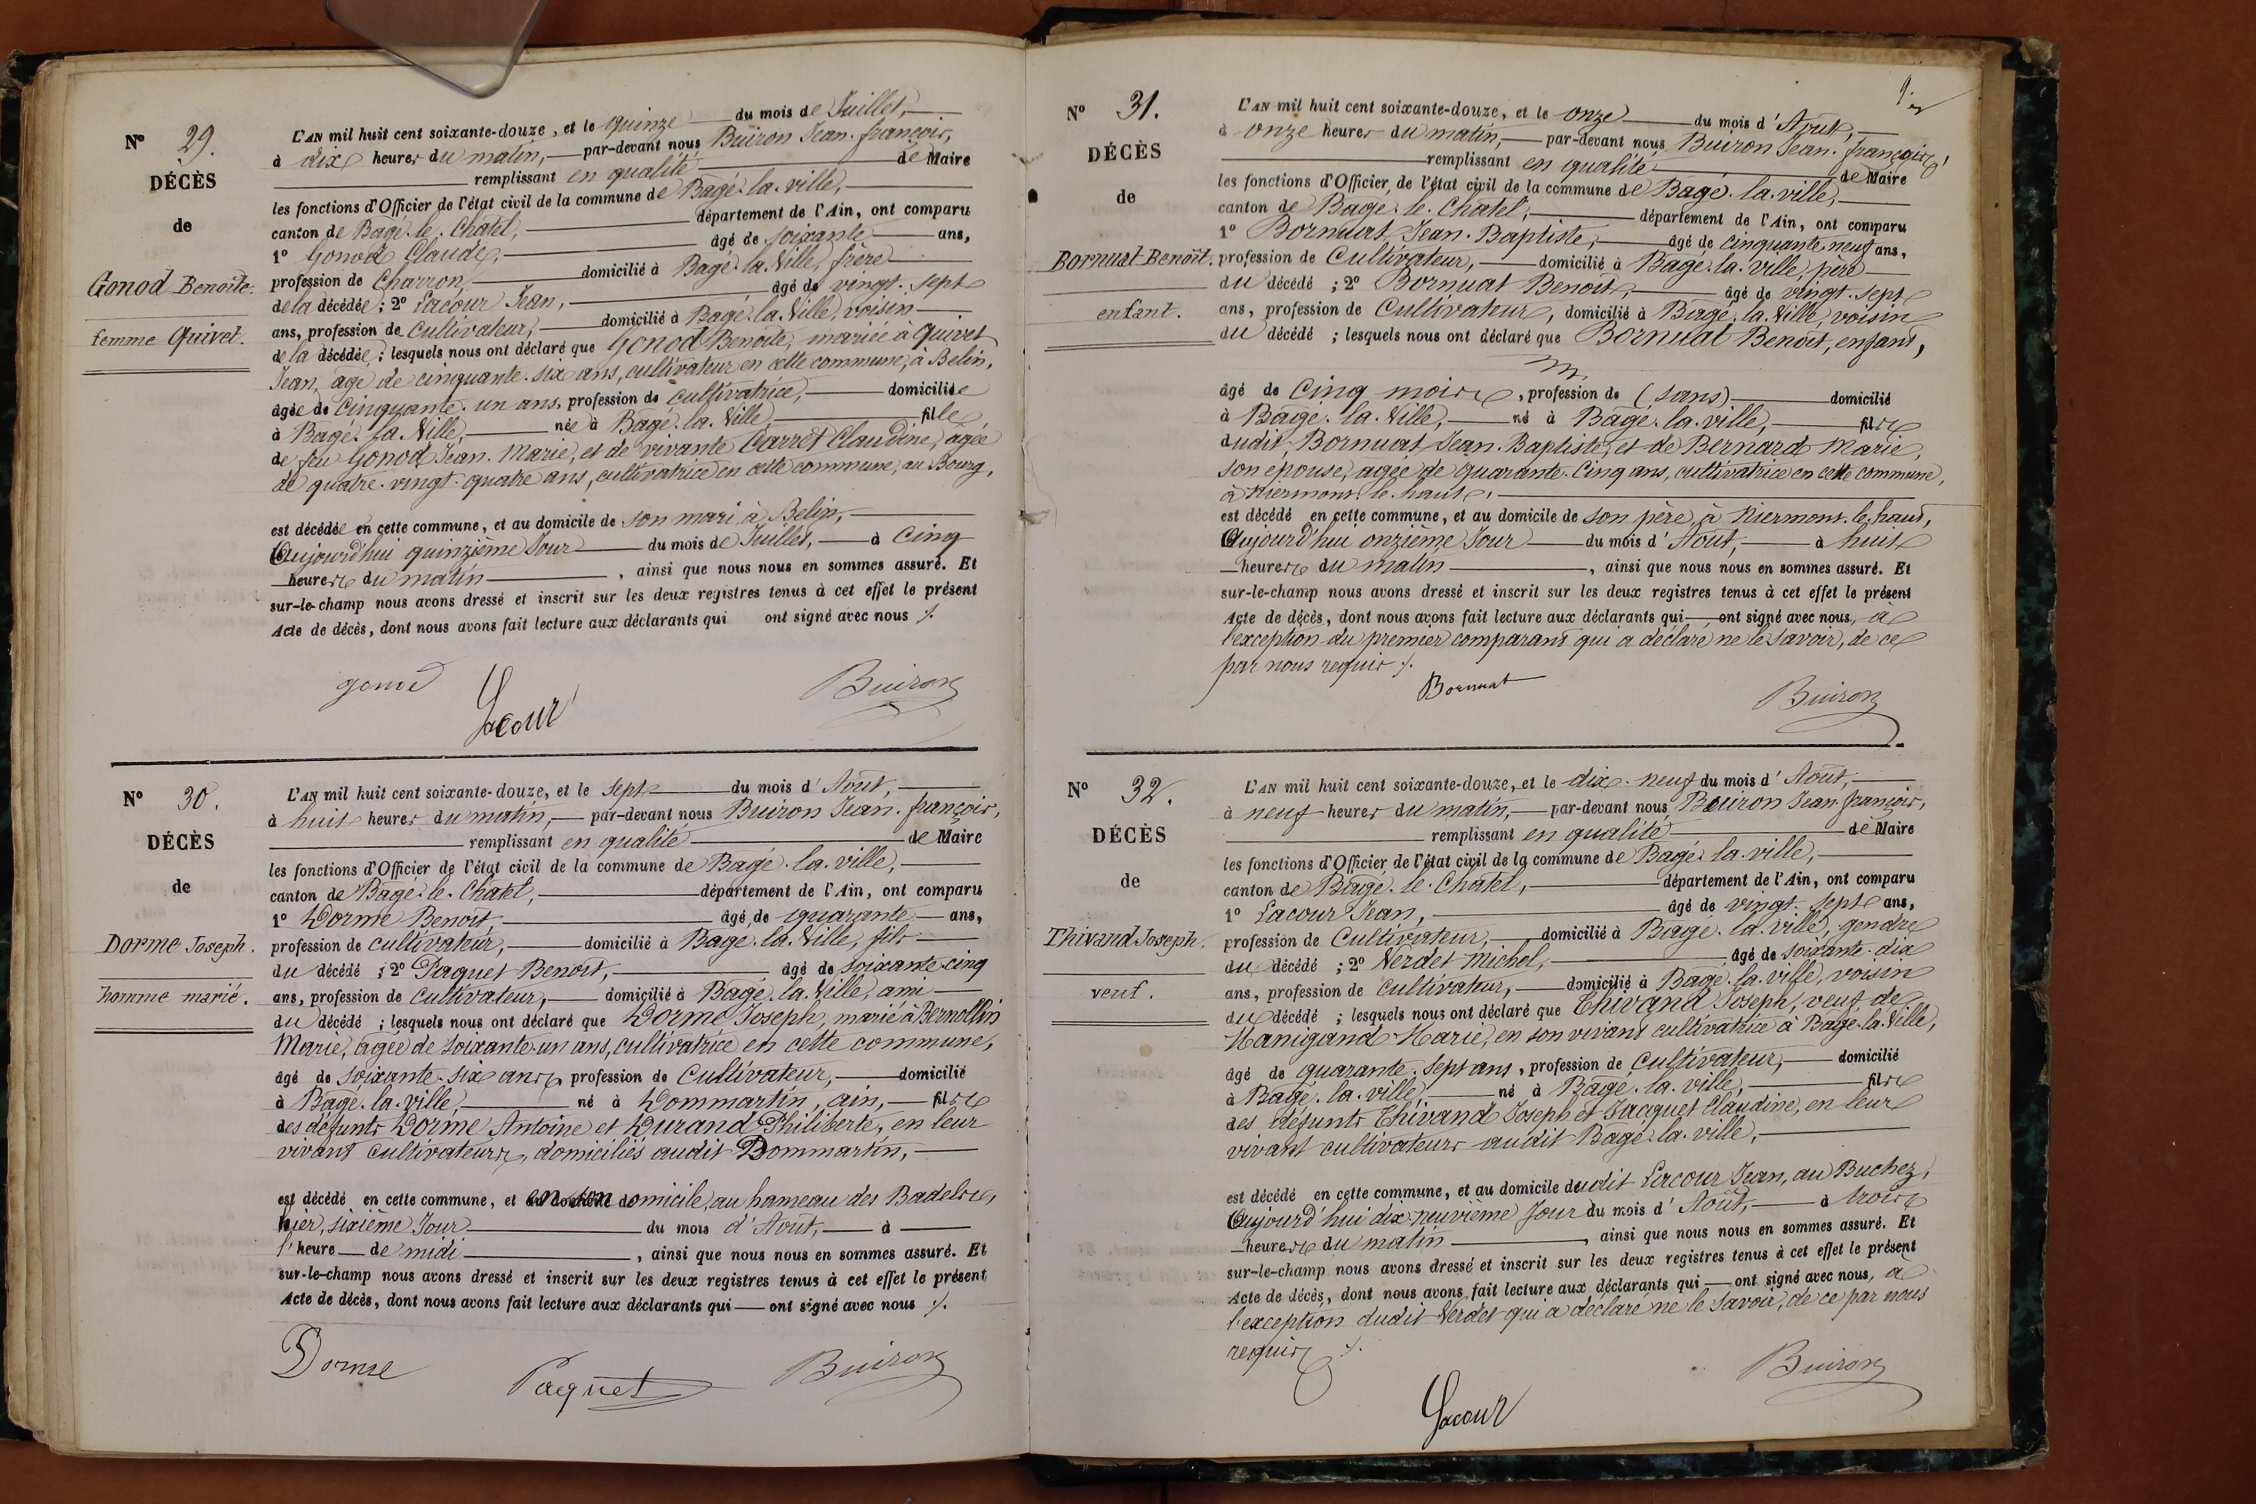 N° 29.
DÉCÈS
de
Gonod Benoite.
femme Quivet.
L'AN mil huit cent soixante-douze, et le quinze du mois de Juillet,
à dix heures du matin, par-devant nous Buiron Jean-françois,
remplissant en qualité de Maire
les fonctions d'Officier de l'état civil de la commune de Bagé-la-ville,
canton de Bagé-le-Chatel, département de l'Ain, ont comparu
1° Gonod Claude, âgé de soixante ans,
profession de Charron, domicilié à Bagé-la-Ville, frère
de la décédée ; 2° Lacour Jean, âgé de vingt-sept
ans, profession de cultivateur, domicilié à Bagé-la-Ville, voisin
de la décédée ; lesquels nous ont déclaré que Gonod Benoite, mariée à Quivet
Jean, âgé de cinquante-six ans, cultivateur en cette commune, à Belin,
âgée de cinquante-un ans, profession de cultivatrice, domiciliée
à Bagé-la-Ville, née à Bagé-la-Ville, fille
de feu Gonod Jean-Marie, et de vivante Carret Claudine, âgée
de quatre-vingt-quatre ans, cultivatrice en cette commune, au Bourg,
est décédée en cette commune, et au domicile de son mari, à Belin,
Aujourd'hui quinzième Jour du mois de Juillet, à Cinq
heures du matin, ainsi que nous nous en sommes assuré. Et
sur-le-champ nous avons dressé et inscrit sur les deux registres tenus à cet effet le présent
Acte de décès, dont nous avons fait lecture aux déclarants qui ont signé avec nous ./.
gonod
Lacour
Buiron
N° 30.
DÉCÈS
de
Dorme Joseph.
homme marié.
L'AN mil huit cent soixante-douze, et le sept du mois d'Août,
à huit heures du matin, par-devant nous Buiron Jean-françois,
remplissant en qualité de Maire
les fonctions d'Officier de l'état civil de la commune de Bagé-la-ville,
canton de Bagé-le-Chatel, département de l'Ain, ont comparu
1° Dorme Benoit, âgé de quarante ans,
profession de cultivateur, domicilié à Bagé-la-Ville, fils
du décédé ; 2° Paquet Benoit, âgé de soixante-cinq
ans, profession de cultivateur, domicilié à Bagé-la-Ville, ami
du décédé ; lesquels nous ont déclaré que Dorme Joseph, marié à Bernollin
Marie, âgée de soixante-un ans, cultivatrice en cette commune,
âgé de soixante-six ans, profession de Cultivateur, domicilié
à Bagé-la-ville, né à Dommartin, ain, fils
des défunts Dorme Antoine et Durand Philiberte, en leur
vivant Cultivateurs, domiciliés audit Dommartin,
est décédé en cette commune, et en son domicile, au hameau des Badels,
hier, sixième Jour du mois d'Août, à
l'heure de midi, ainsi que nous nous en sommes assuré. Et
sur-le-champ nous avons dressé et inscrit sur les deux registres tenus à cet effet le présent
Acte de décès, dont nous avons fait lecture aux déclarants qui ont signé avec nous ./.
Dorme
Paquet
Buiron
N° 31.
DÉCÈS
de
Bornuat Benoît.
enfant.
L'AN mil huit cent soixante-douze, et le onze du mois d'Août,
à onze heures du matin, par-devant nous Buiron Jean-françois,
remplissant en qualité de Maire
les fonctions d'Officier de l'état civil de la commune de Bagé-la-ville,
canton de Bagé-le-Chatel, département de l'Ain, ont comparu
1° Bornuat Jean-Baptiste, âgé de cinquante-neuf ans,
profession de Cultivateur, domicilié à Bagé-la-ville, père
du décédé ; 2° Bornuat Benoit, âgé de vingt-sept
ans, profession de Cultivateur, domicilié à Bagé-la-Ville, voisin
du décédé ; lesquels nous ont déclaré que Bornuat Benoit, enfant,
âgé de Cinq mois, profession de (sans) domicilié
à Bagé-la-Ville, né à Bagé-la-ville, fils
dudit Bornuat Jean-Baptiste, et de Bernard Marie,
son épouse, âgée de quarante-cinq ans, cultivatrice en cette commune,
à Niermont-le-haut,
est décédé en cette commune, et au domicile de son père, à Niermont-le-haut,
Aujourd'hui onzième Jour du mois d'Août, à huit
heures du matin, ainsi que nous nous en sommes assuré. Et
sur-le-champ nous avons dressé et inscrit sur les deux registres tenus à cet effet le présent
Acte de décès, dont nous avons fait lecture aux déclarants qui ont signé avec nous, à
l'exception du premier comparant qui a déclaré ne le savoir, de ce
par nous requis ./.
Bornuat
Buiron
N° 32.
DÉCÈS
de
Thivand Joseph.
veuf.
L'AN mil huit cent soixante-douze, et le dix-neuf du mois d'Août,
à neuf heures du matin, par-devant nous Buiron Jean-françois,
remplissant en qualité de Maire
les fonctions d'Officier de l'état civil de la commune de Bagé-la-ville,
canton de Bagé-le-Chatel, département de l'Ain, ont comparu
1° Lacour Jean, âgé de vingt-sept ans,
profession de Cultivateur, domicilié à Bagé-la-ville, gendre
du décédé ; 2° Verdet Michel, âgé de soixante-dix
ans, profession de Cultivateur, domicilié à Bagé-la-ville, voisin
du décédé ; lesquels nous ont déclaré que Thivand Joseph, veuf de
Manigand Marie, en son vivant cultivatrice à Bagé-la-Ville,
âgé de quarante-sept ans, profession de Cultivateur, domicilié
à Bagé-la-ville, né à Bagé-la-ville, fils
des défunts Thivand Joseph et Jacquet Claudine, en leur
vivant cultivateurs audit Bagé-la-ville,
est décédé en cette commune, et au domicile dudit Lacour Jean, au Buchez,
Aujourd'hui dix-neuvième Jour du mois d'Août, à trois
heures du matin, ainsi que nous nous en sommes assuré. Et
sur-le-champ nous avons dressé et inscrit sur les deux registres tenus à cet effet le présent
Acte de décès, dont nous avons fait lecture aux déclarants qui ont signé avec nous, à
l'exception dudit Verdet qui a déclaré ne le savoir, de ce par nous
requis ./.
Lacour
Buiron